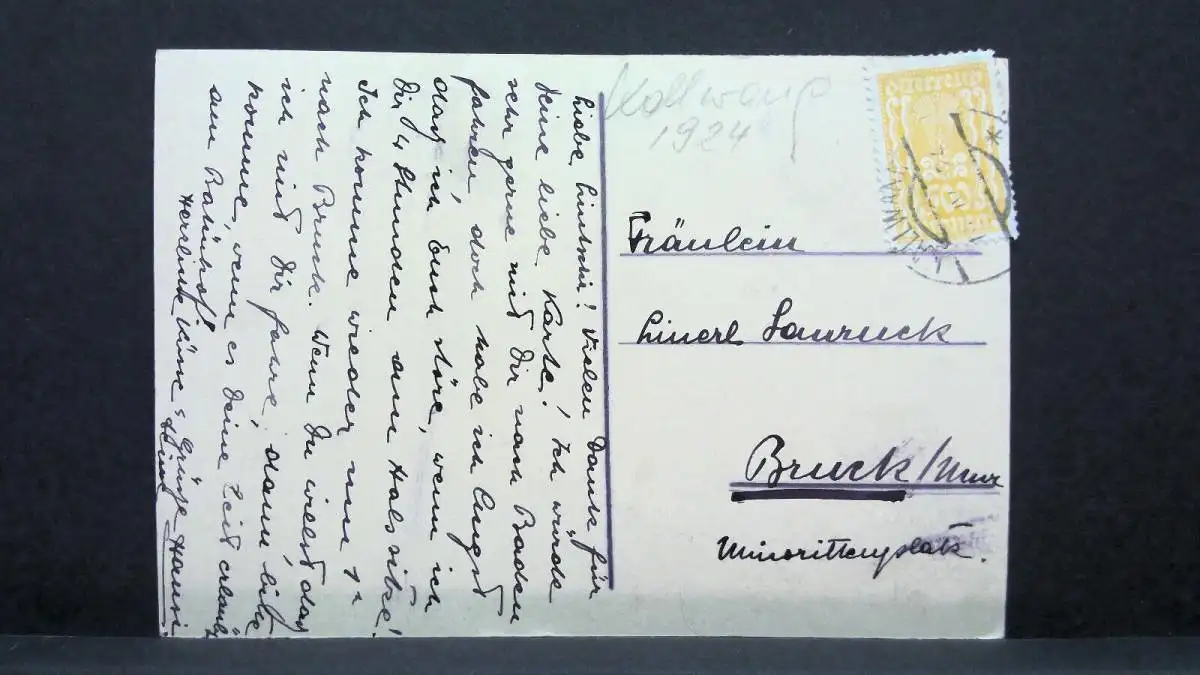 Kallwang
1924
Österreich
KALLWANG
Fräulein
Linerl Lauruck
Bruck/Mur
Minoritenplatz.
Liebe Lintschi! Vielen Dank für
Deine liebe Karte! Ich würde
sehr gerne mit Dir nach Baden
fahren, doch habe ich Angst
daß ich Euch störe, wenn ich
Dir 4 Stunden am Hals sitze!
Ich komme wieder um 1h
nach Bruck. Wenn Du willst daß
ich mit Dir fahre, dann, bitte
komme, wenn es Deine Zeit erlaubt
am Bahnhof!
Herzlichste Küsse & Grüße Hansi